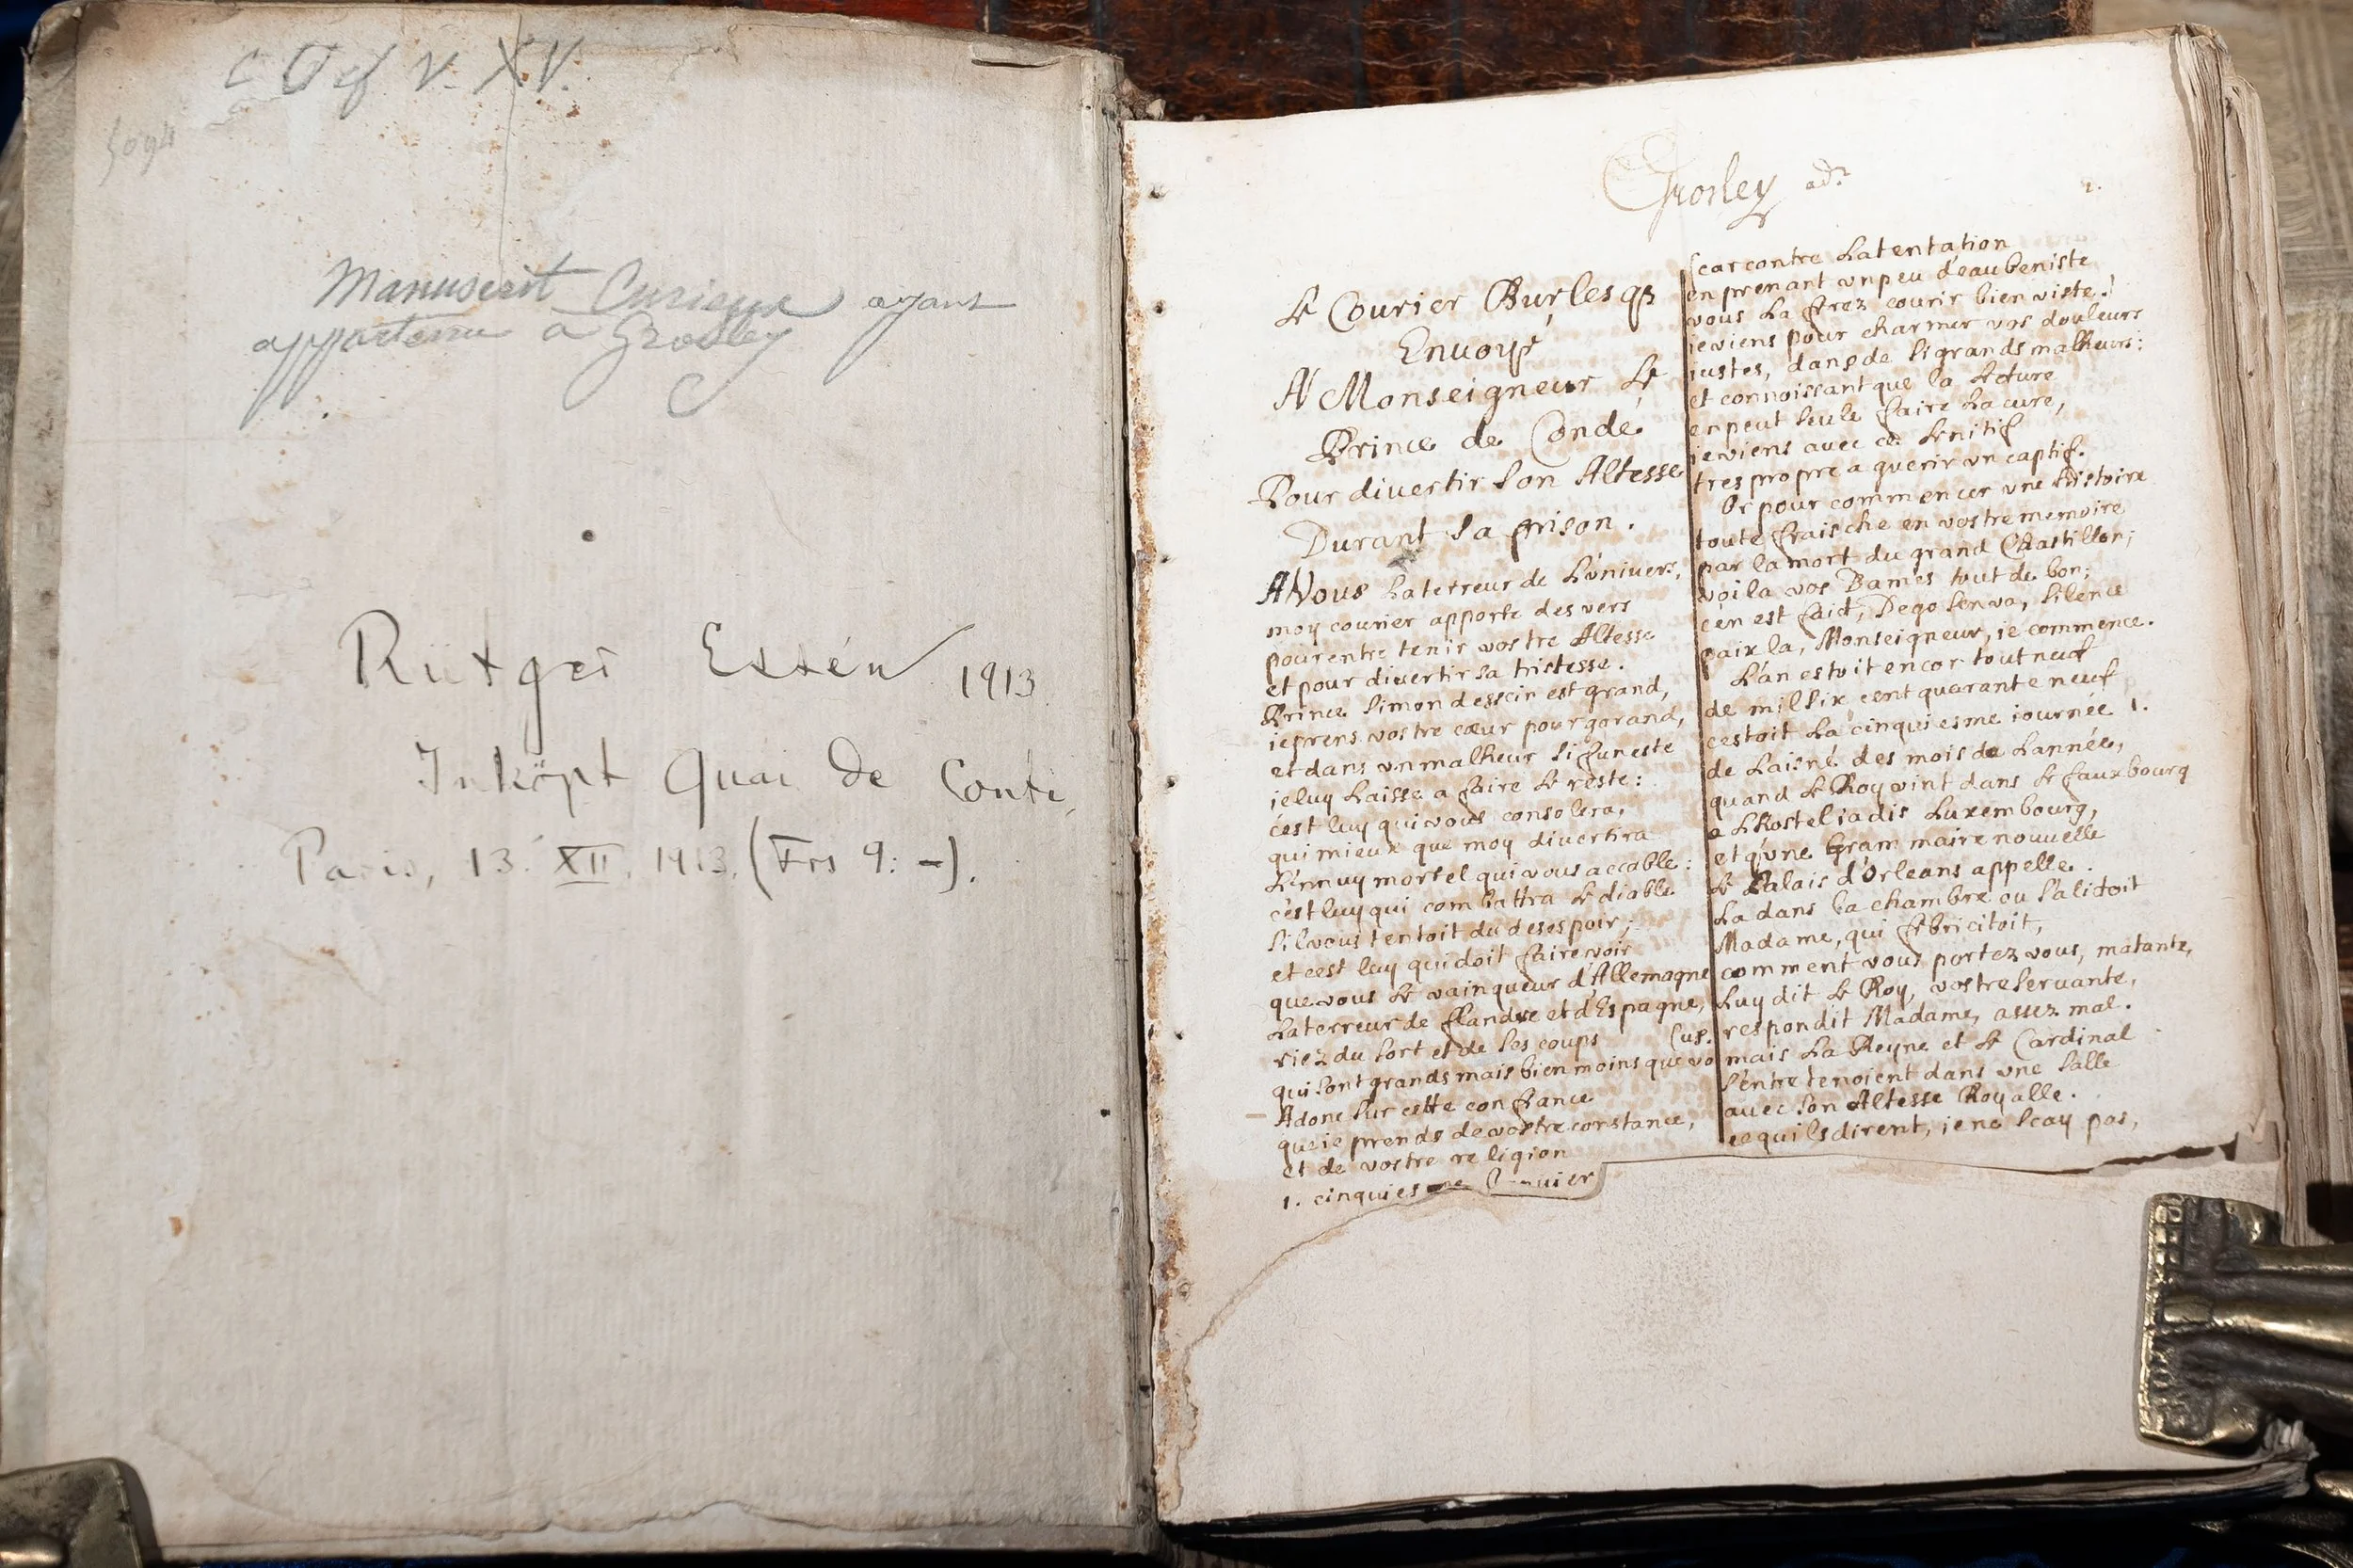 C
V. XV.
5094
Manuscrit Curieux ayant
appartenu a Grosley
Rütger Essén 1913
Inköpt Quai de Conti,
Paris, 13. XII. 1913. (Frs 9: -).
Grosley adr
1.
Le Courier Burlesqe
Enuoyé
A Monseigneur Le
Prince de Condé
Pour diuertir son Altesse
Durant sa prison.
A Vous La terreur de L'univers,
moy courier apporte des vers
pour entretenir vostre Altesse
et pour divertir sa tristesse.
Prince si mon dessein est grand,
ie prens vostre cœur pour garand,
et dans un malheur si funeste
ie luy Laisse a faire Le reste:
c'est luy qui vous consolera,
qui mieux que moy divertira
L'ennuy mortel qui vous accable:
c'est luy qui combattra Le diable
s'il vous tentoit du desespoir;
et cest luy qui doit faire voir
que vous Le vainqueur d'Allemagne
La terreur de flandre et d'Espagne,
riez du sort et de ses coups
qui sont grands mais bien moins que vo
(us.
Adonc sur cette confiance
que ie prends de vostre constance,
et de vostre religion
1. cinquiesme Januier
car contre La tentation
en prenant vn peu d'eau beniste
vous La ferez courir bien viste!
ie viens pour charmer vos douleurs
iustes, dans de si grands malheurs:
et connoissant que la Lecture
en peut seule faire La cure,
ie viens avec ce Lenitif
tres propre a guerir vn captif.
Or pour commencer vne histoire
toute fraische en vostre memoire
par la mort du grand Chastillon;
voila vos Dames tout de bon;
c'en est faict, Dego s'en va, silence
paix la, Monseigneur, ie commence.
L'an estoit encor tout neuf
de mil six cent quarante neuf
cestoit La cinquiesme iournée 1.
de L'aisné des mois de L'année,
quand Le Roy vint dans Le fauxbourg
a L'Hostel iadis Luxembourg,
et qu'vne Grammaire nouuelle
Le Palais d'Orleans appelle.
La dans la chambre ou s'alictoit
Madame, qui febricitoit,
comment vous portez vous, matante,
Luy dit Le Roy, vostre seruante,
respondit Madame, assez mal.
mais La Reyne et Le Cardinal
s'entretenoient dans vne salle
avec son Altesse Royalle.
ce quils dirent, ie ne scay pas,